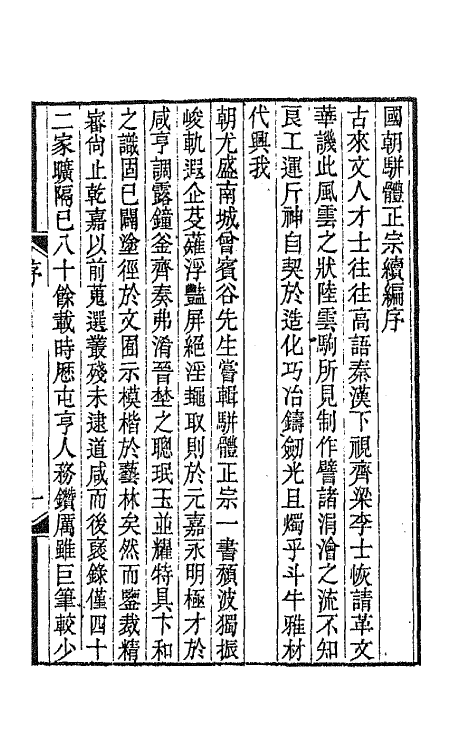 國朝駢體正宗續編序
古來文人才士往往高語秦漢下視齊梁李士恢請革文
華譏此風雲之狀陸雲駒所見制作譬諸涓澮之流不知
良工運斤神自契於造化巧冶鑄劒光且燭乎斗牛雅材
代興我
朝尤盛南城曾賓谷先生嘗輯駢體正宗一書頽波獨振
峻軌遐企芟薙浮豔屏絕淫䵷取則於元嘉永明極才於
咸亨調露鐘釜齊奏弗淆晉埜之聰珉玉並耀特具卞和
之識固已闢塗徑於文囿示模楷於藝林矣然而鑒裁精
審尙止乾嘉以前蒐選叢殘未逮道咸而後裒錄僅四十
二家曠隔已八十餘載時厯屯亨人務鑽厲雖巨筆較少
序
一